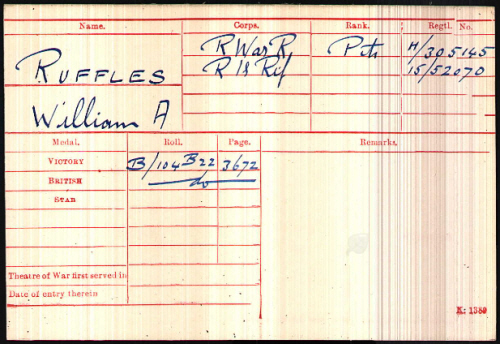 Name. Corps. Rank. Regtl. No.
RUFFLES R War R. Pte 305145
William A R Ir Rif 15/52070
Medal. Roll. Page. Remarks.
VICTORY B/104 B22 3672
BRITISH do
STAR
Theatre of War first served in
Date of entry therein
K: 1380